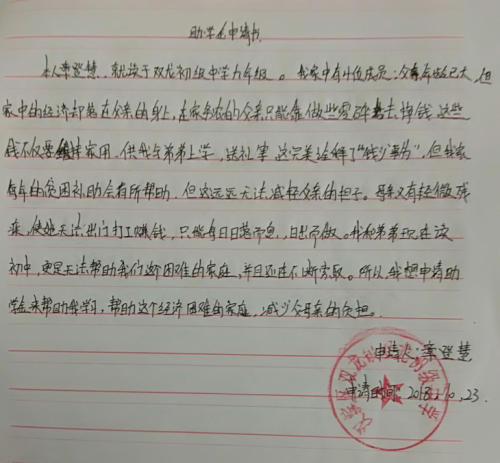 助学金申请书
本人李登慧,就读于双龙初级中学九年级。我家中有4位成员:父亲年龄已大,但
家中的经济却落在父亲的身上,在家务农的父亲只能靠做些零碎去挣钱,这些
钱不仅要维持家用,供我与弟弟上学,送礼等 这完美诠释了“钱少事多”,但我家
每年的贫困补助会有所帮助,但这远远无法减轻父亲的担子。母亲又有轻微残
疾,使她无法出门打工赚钱,只能每日日落而息,日出而做。我和弟弟现在读
初中,更是无法帮助我们这个困难的家庭,并且还在不断索取。所以,我想申请助
学金来帮助我学习,帮助这个经济困难的家庭,减少父母亲的负担。
申请人:李登慧
申请时间:2018.10.23.